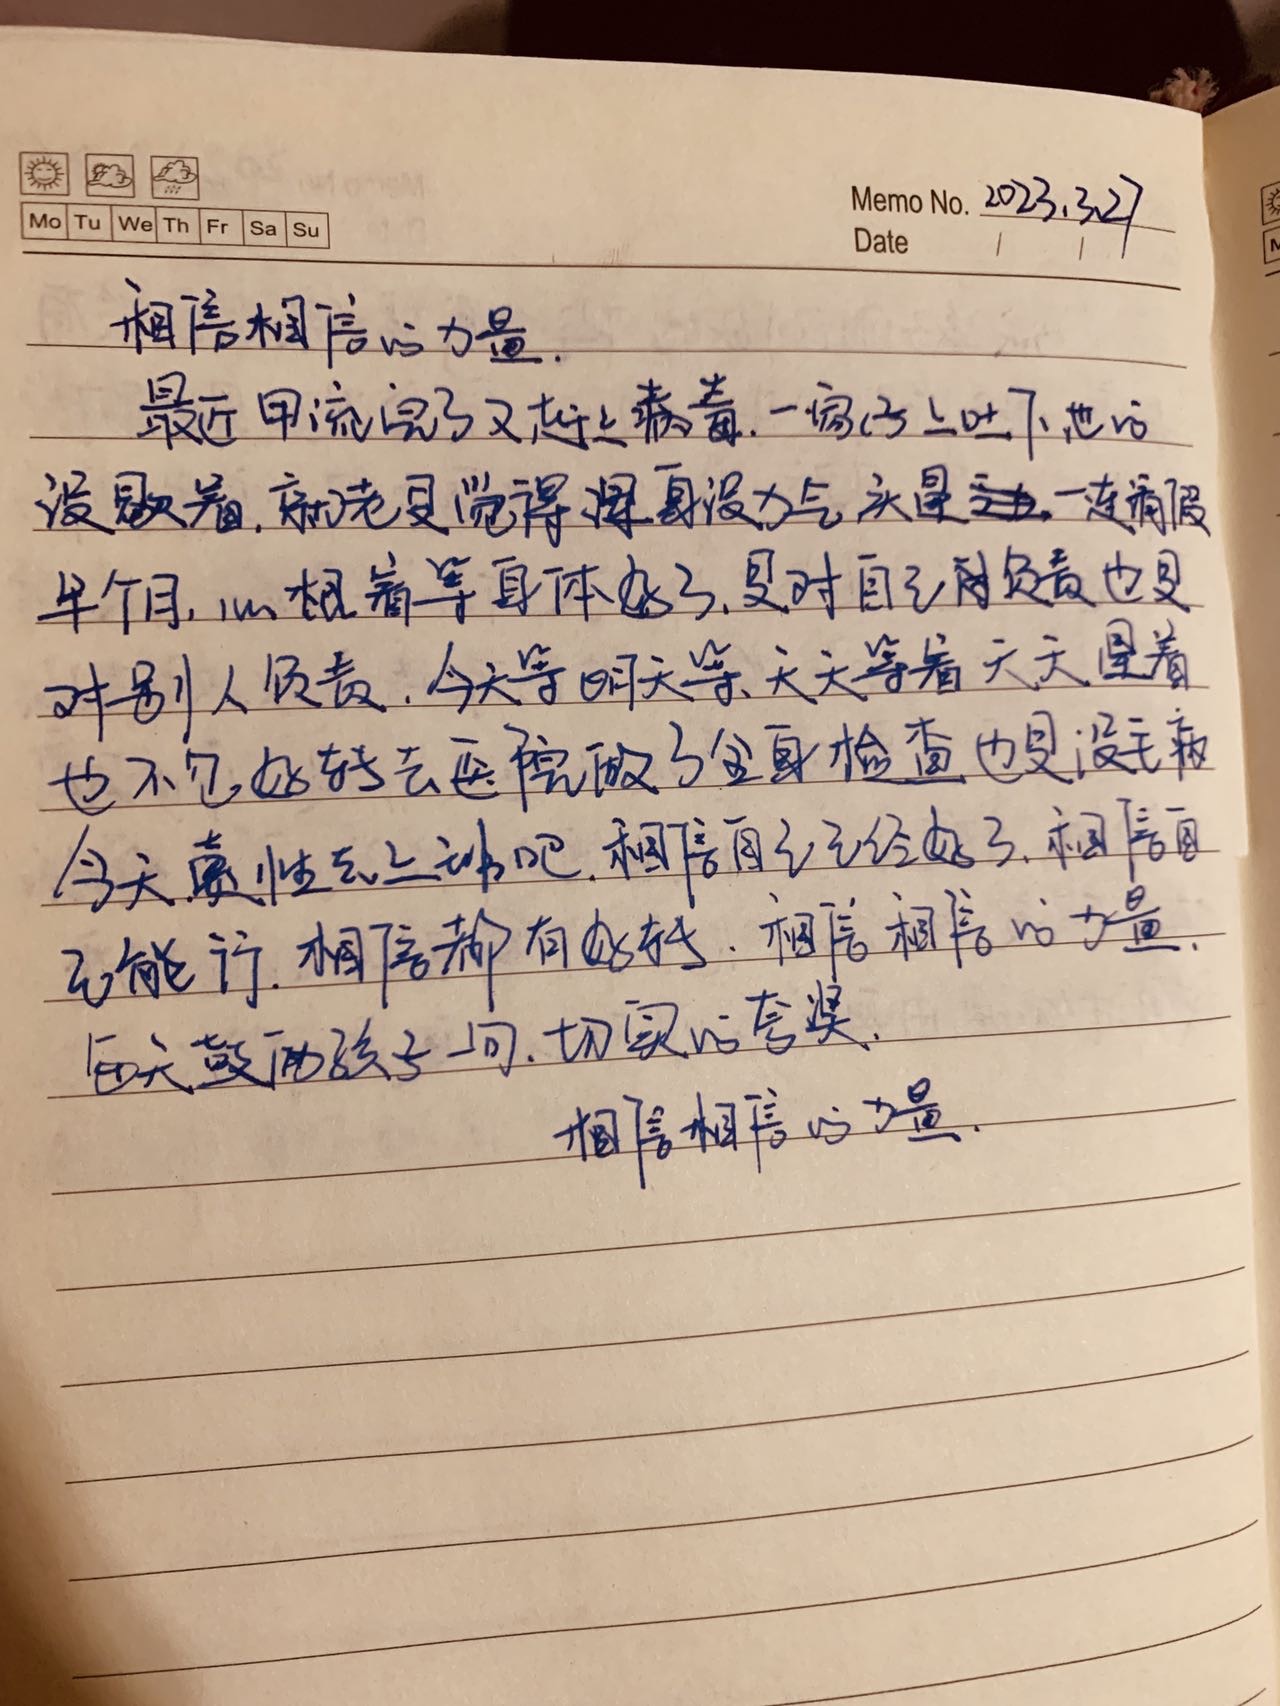 Memo No. 2023.3.27
Mo Tu We Th Fr Sa Su
Date / /
相信相信的力量.
最近甲流完了又赶上病毒.一家子上吐下泄的
没歇着.就老是觉得浑身没力气头晕 一连病假
半个月.心想着等身体好了.是对自己负责也是
对别人负责.今天等明天等、天天等着天天晕着
也不见好转去医院做了全身检查也是没毛病
今天索性去上班吧.相信自己已经好了.相信自
己能行.相信都有好转.相信相信的力量.
每天鼓励孩子一句.切实的夸奖.
相信相信的力量.